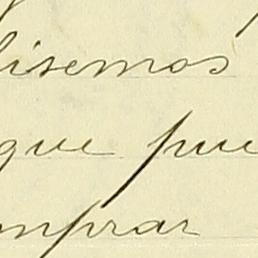 lisemos
que pue
mprar